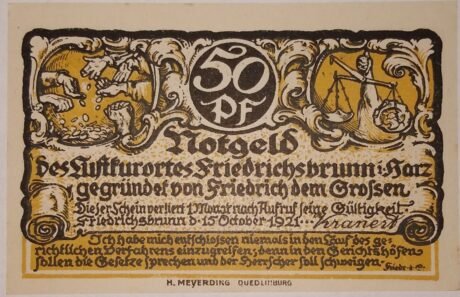 50
PF
Notgeld
des Luftkurortes Friedrichsbrunn i. Harz
gegründet von Friedrich dem Grossen.
Dieser Schein verliert 1 Monat nach Aufruf seine Gültigkeit.
Friedrichsbrunn d. 15 October 1921. Kranert
Ich habe mich entschlossen niemals in den Lauf des ge-
richtlichen Verfahrens einzugreifen; denn in den Gerichtshöfen
sollen die Gesetze sprechen und der Herrscher soll schweigen.
H. MEYERDING QUEDLINBURG